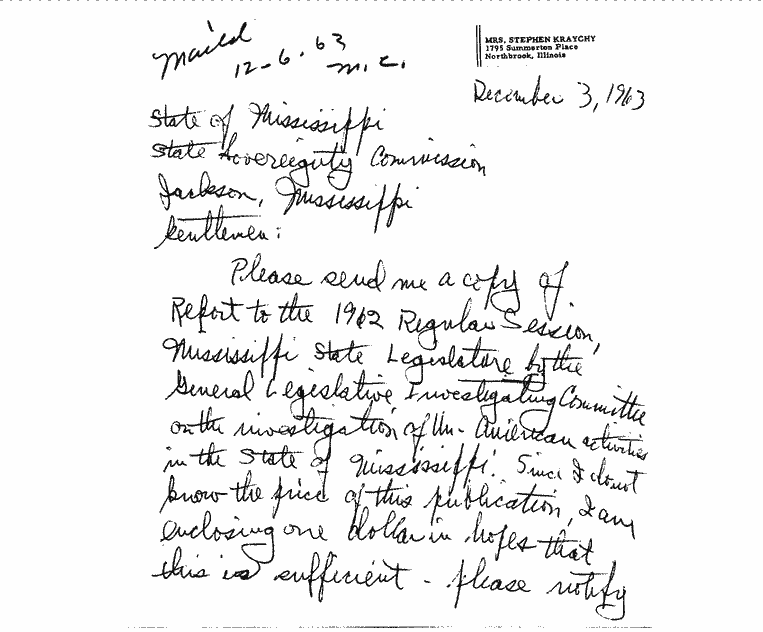 Mailed
12-6-63
m.c.
MRS. STEPHEN KRAYCHY
1795 Summerton Place
Northbrook, Illinois
December 3, 1963
State of Mississippi
State Sovereignty Commission
Jackson, Mississippi
Gentlemen:
Please send me a copy of
Report to the 1962 Regular Session,
Mississippi State Legislature by the
General Legislative Investigating Committee
on the investigation of Un-American activities
in the State of Mississippi. Since I do not
know the price of this publication, I am
enclosing one dollar in hopes that
this is sufficient - please notify